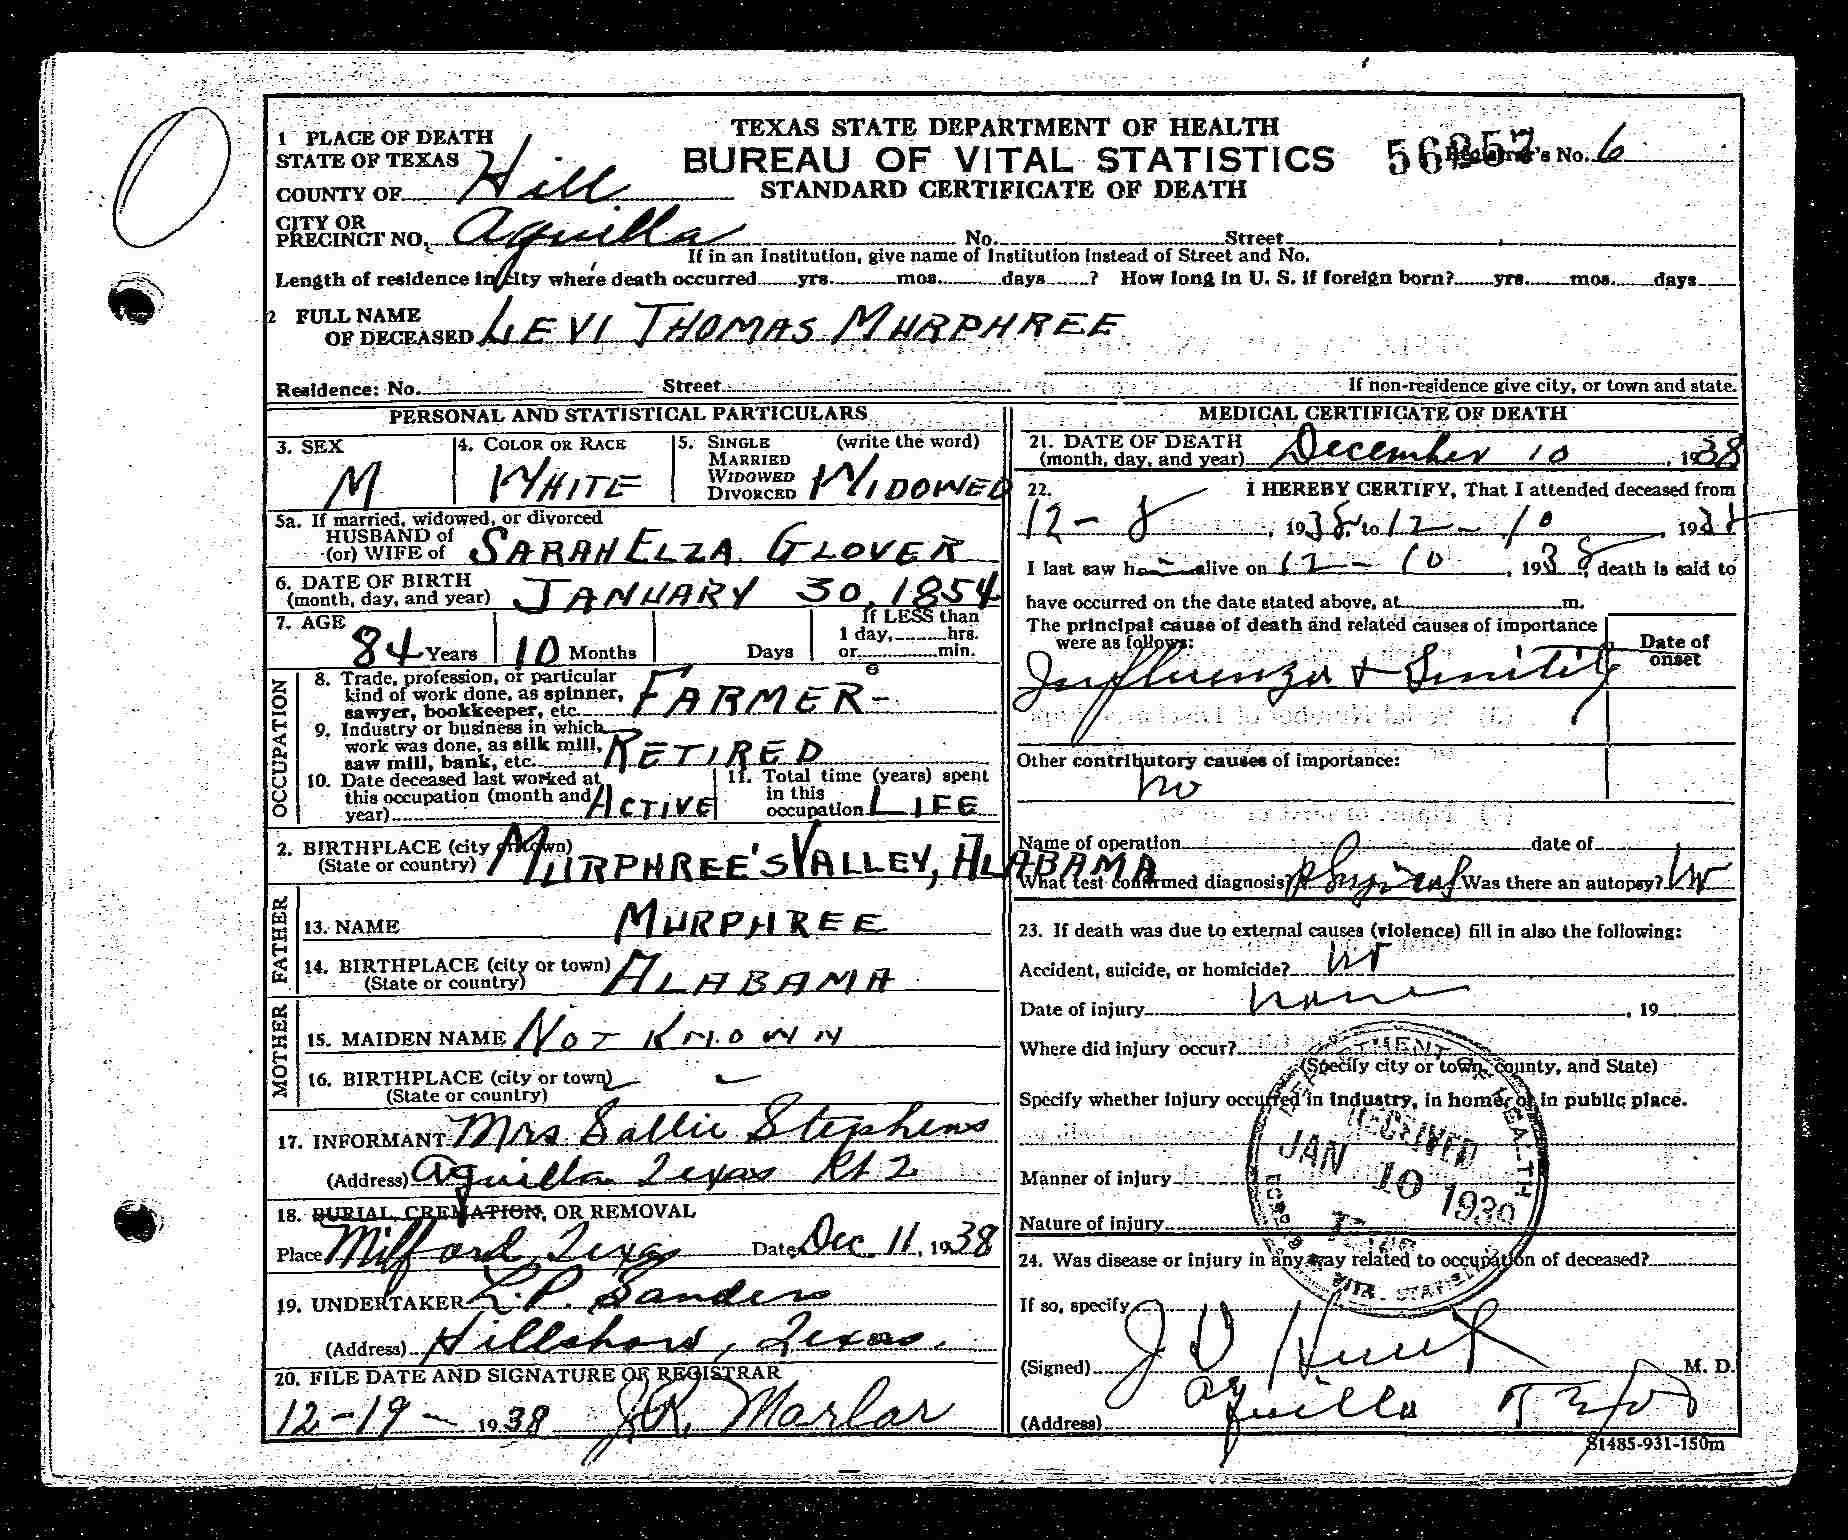 TEXAS STATE DEPARTMENT OF HEALTH
BUREAU OF VITAL STATISTICS
STANDARD CERTIFICATE OF DEATH
56257 Registrar's No. 6
1 PLACE OF DEATH
STATE OF TEXAS
COUNTY OF Hill
CITY OR
PRECINCT NO. Aquilla No. Street
If in an Institution, give name of Institution instead of Street and No.
Length of residence in city where death occurred yrs. mos. days ? How long in U. S. if foreign born? yrs. mos. days
2 FULL NAME
OF DECEASED LEVI THOMAS MURPHREE
Residence: No. Street If non-residence give city, or town and state.
PERSONAL AND STATISTICAL PARTICULARS
3. SEX
M
4. COLOR OR RACE
WHITE
5. SINGLE (write the word)
MARRIED
WIDOWED
DIVORCED WIDOWED
5a. If married, widowed, or divorced
HUSBAND of
(or) WIFE of SARAH ELZA GLOVER
6. DATE OF BIRTH
(month, day, and year) JANUARY 30, 1854
7. AGE
84 Years 10 Months Days
If LESS than
1 day, hrs.
or min.
OCCUPATION
8. Trade, profession, or particular
kind of work done, as spinner,
sawyer, bookkeeper, etc. FARMER-
9. Industry or business in which
work was done, as silk mill,
saw mill, bank, etc. RETIRED
10. Date deceased last worked at
this occupation (month and
year) ACTIVE
11. Total time (years) spent
in this
occupation LIFE
2. BIRTHPLACE (city or town)
(State or country) MURPHREE'S VALLEY, ALABAMA
FATHER
13. NAME MURPHREE
14. BIRTHPLACE (city or town)
(State or country) ALABAMA
MOTHER
15. MAIDEN NAME NOT KNOWN
16. BIRTHPLACE (city or town) - -
(State or country)
17. INFORMANT Mrs Sallie Stephens
(Address) Aquilla Texas Rt 2
18. BURIAL, CREMATION, OR REMOVAL
Place Milford, Texas Date Dec. 11, 1938
19. UNDERTAKER L.P. Sanders
(Address) Hillsboro, Texas.
20. FILE DATE AND SIGNATURE OF REGISTRAR
12-19- 1938 J.R. Marlar
MEDICAL CERTIFICATE OF DEATH
21. DATE OF DEATH
(month, day, and year) December 10, 1938
22. I HEREBY CERTIFY, That I attended deceased from
12-8, 1938, to 12-10, 1938
I last saw h alive on 12-10, 1938, death is said to
have occurred on the date stated above, at m.
The principal cause of death and related causes of importance
were as follows:
Date of
onset
Influenza + Senility
Other contributory causes of importance:
no
Name of operation date of
What test confirmed diagnosis? Physical Was there an autopsy? no
23. If death was due to external causes (violence) fill in also the following:
Accident, suicide, or homicide? no
Date of injury none, 19
Where did injury occur?
(Specify city or town, county, and State)
Specify whether injury occurred in industry, in home, or in public place.
Manner of injury
Nature of injury
DEPARTMENT OF HEALTH
RECEIVED
JAN 10 1939
TEXAS
24. Was disease or injury in any way related to occupation of deceased?
If so, specify
(Signed) J V M. D.
(Address) Aquilla
S1485-931-150m